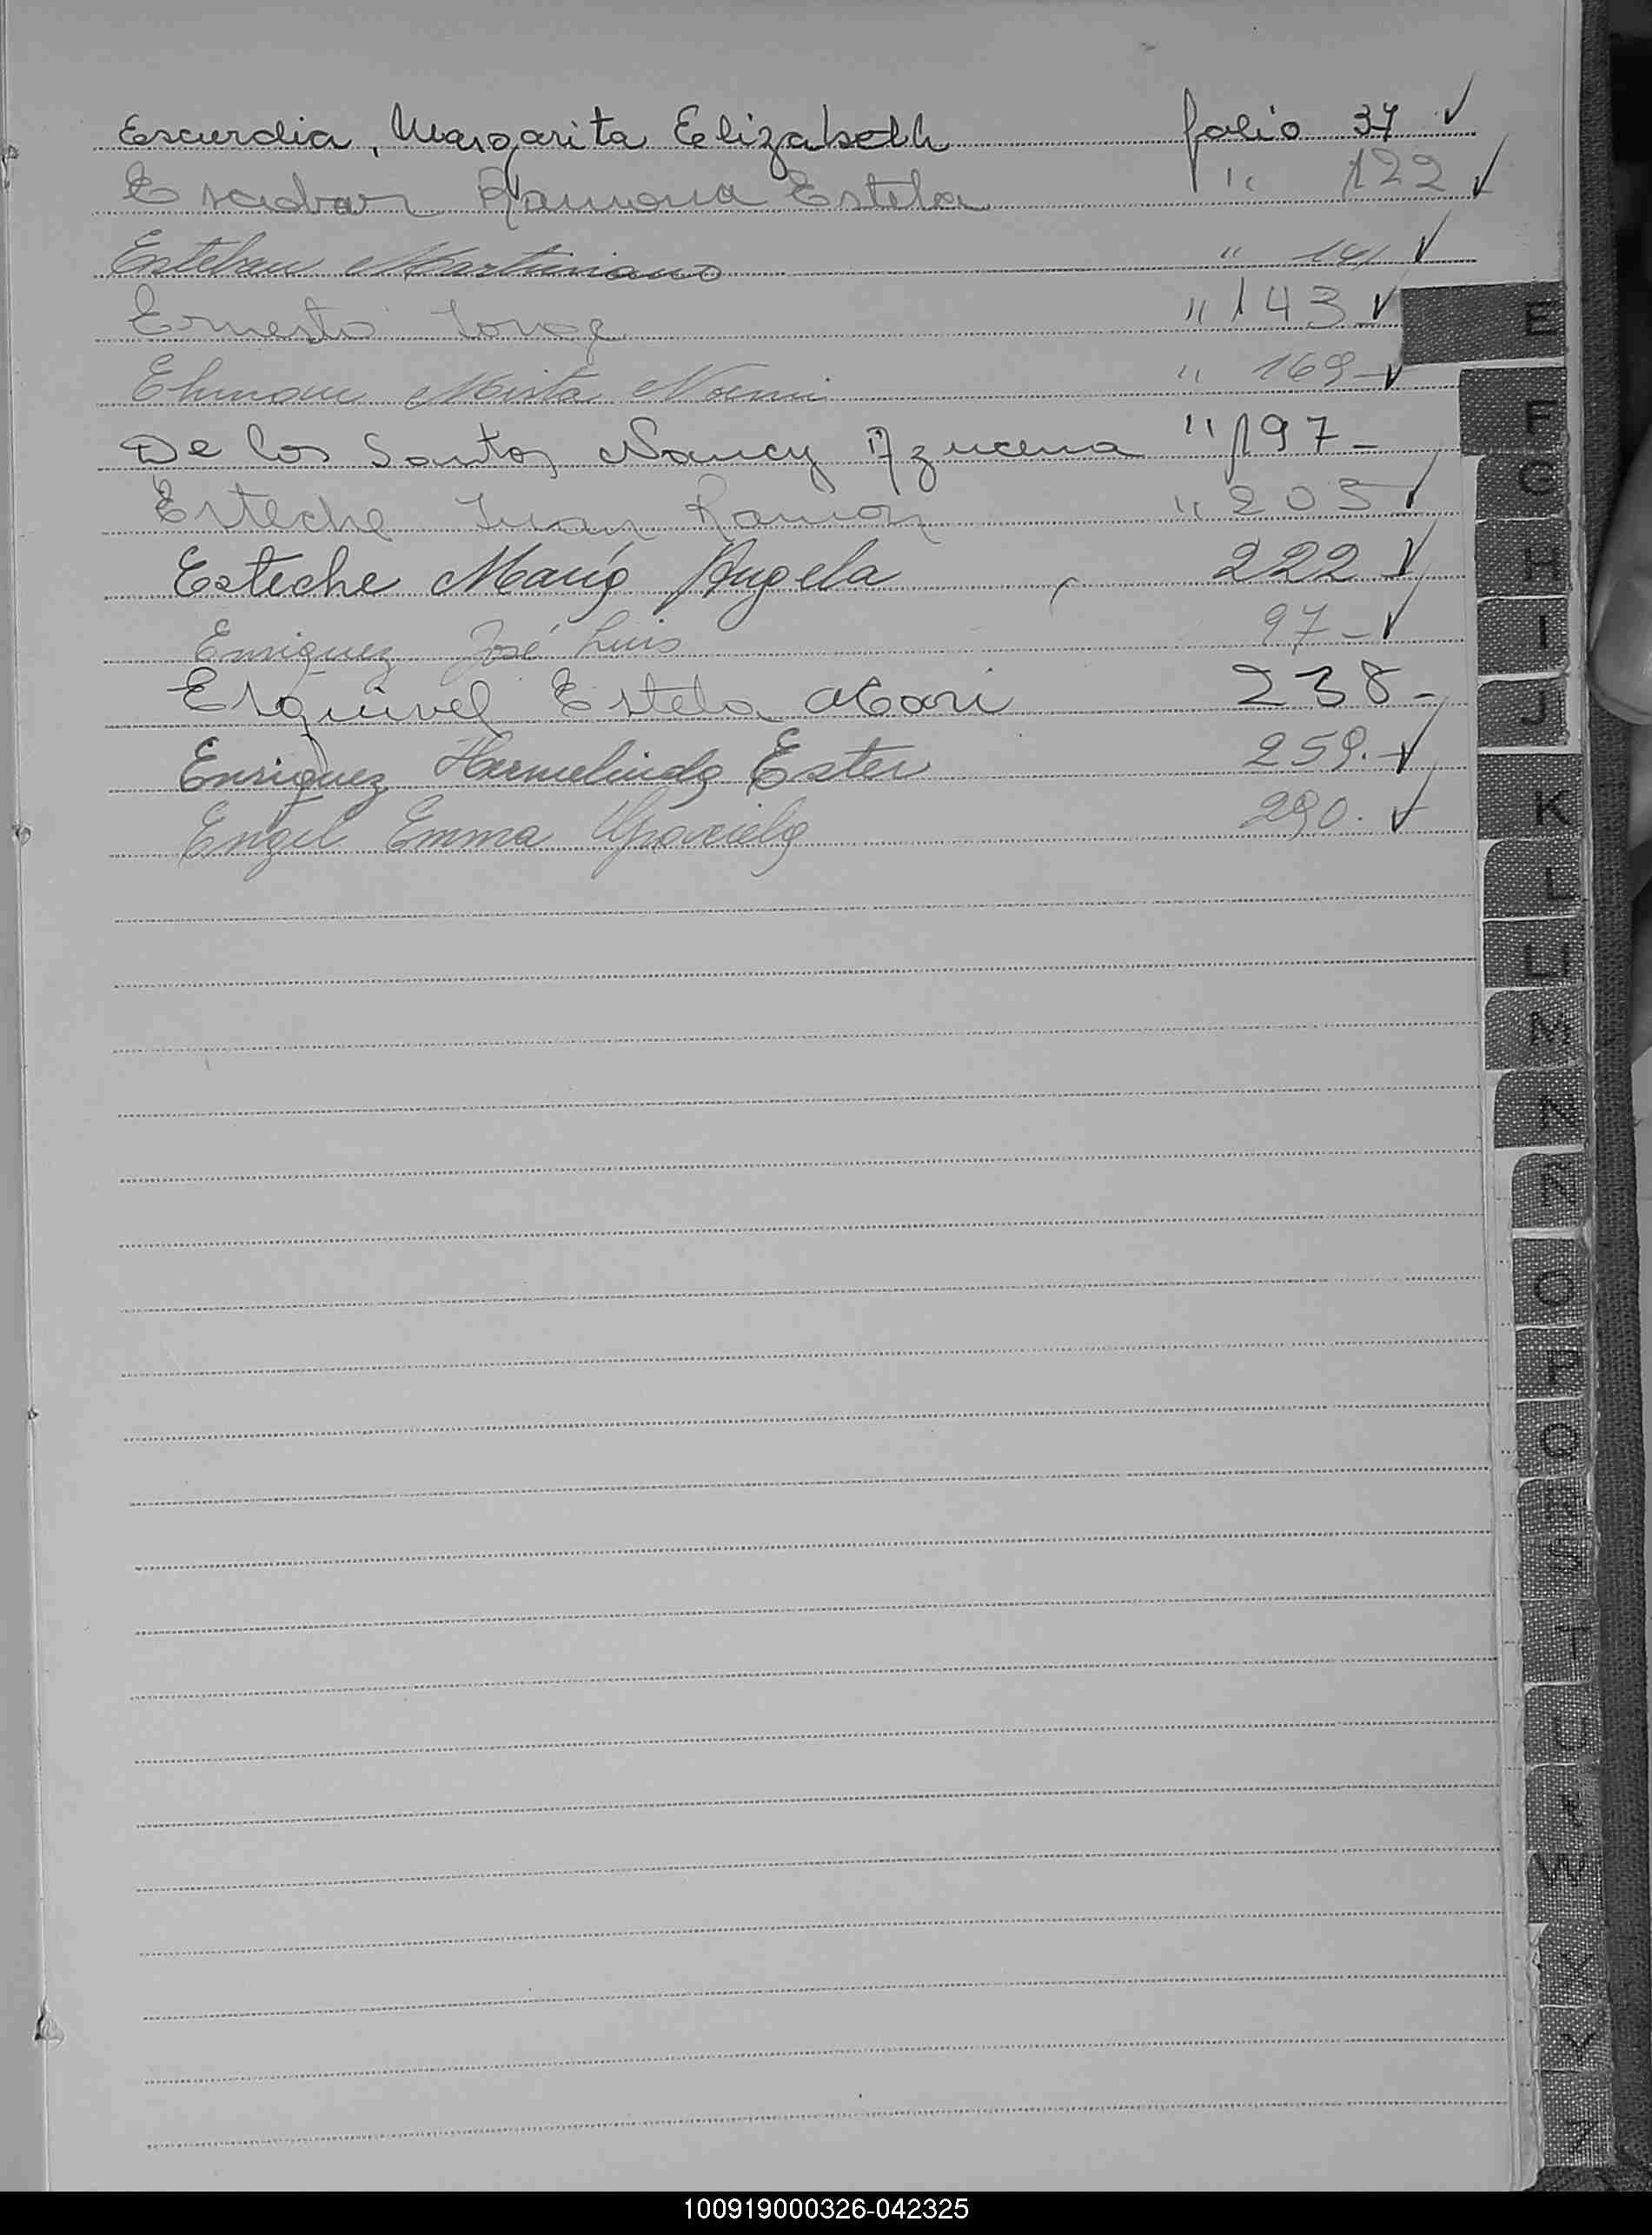 Escurdia, Margarita Elizabeth folio 37 ✓
Escobar Ramona Estela " 122 ✓
Esteban Martiniano " 141 ✓
Ernesto Jorge " 143 ✓
Mirta Noemi " 169 - ✓
De los Santos Nancy Azucena " 197 -
Esteche Juan Ramon " 205 ✓
Esteche María Angela , 222 ✓
Enriquez José Luis 97 - ✓
Esquivel Estela Mari 238 -
Enriquez Hermelinda Ester 259. - ✓
Engel Emma Graciela 290. ✓
E
F
G
H
I
J
K
L
LL
M
N
Ñ
O
P
Q
R
S
T
U
W
X
Y
Z
100919000326-042325